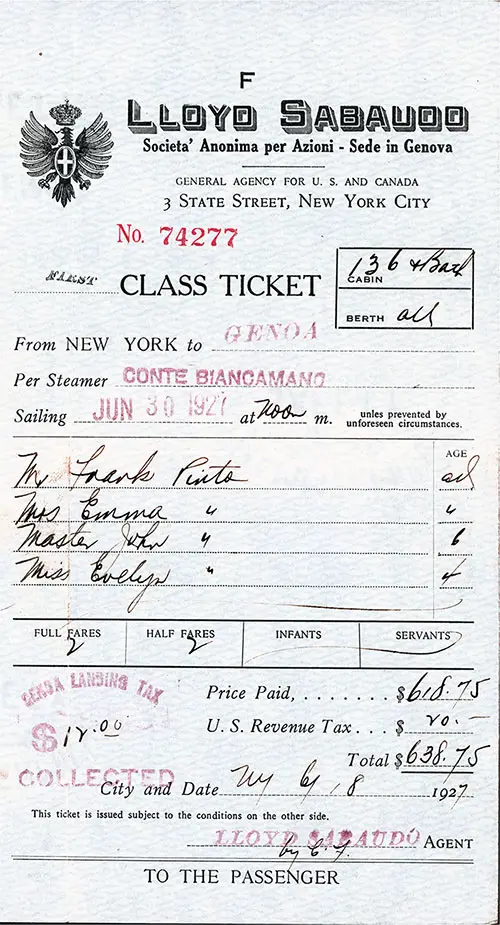 F
LLOYD SABAUDO
Societa' Anonima per Azioni - Sede in Genova
GENERAL AGENCY FOR U. S. AND CANADA
3 STATE STREET, NEW YORK CITY
No. 74277
FIRST CLASS TICKET
CABIN 136 + Bath
BERTH all
From NEW YORK to GENOA
Per Steamer CONTE BIANCAMANO
Sailing JUN 30 1927 at noon m. unles prevented by
unforeseen circumstances.
AGE
Mr Frank Pinto ad
Mrs Emma " "
Master John " 6
Miss Evelyn " 4
FULL FARES HALF FARES INFANTS SERVANTS
2 2
GENOA LANDING TAX
$ 12.00
COLLECTED
Price Paid, . . . . . . . $ 618.75
U. S. Revenue Tax . . . $ 20.-
Total $ 638.75
City and Date NY 6/8 1927
This ticket is issued subject to the conditions on the other side.
LLOYD SABAUDO AGENT
by
TO THE PASSENGER